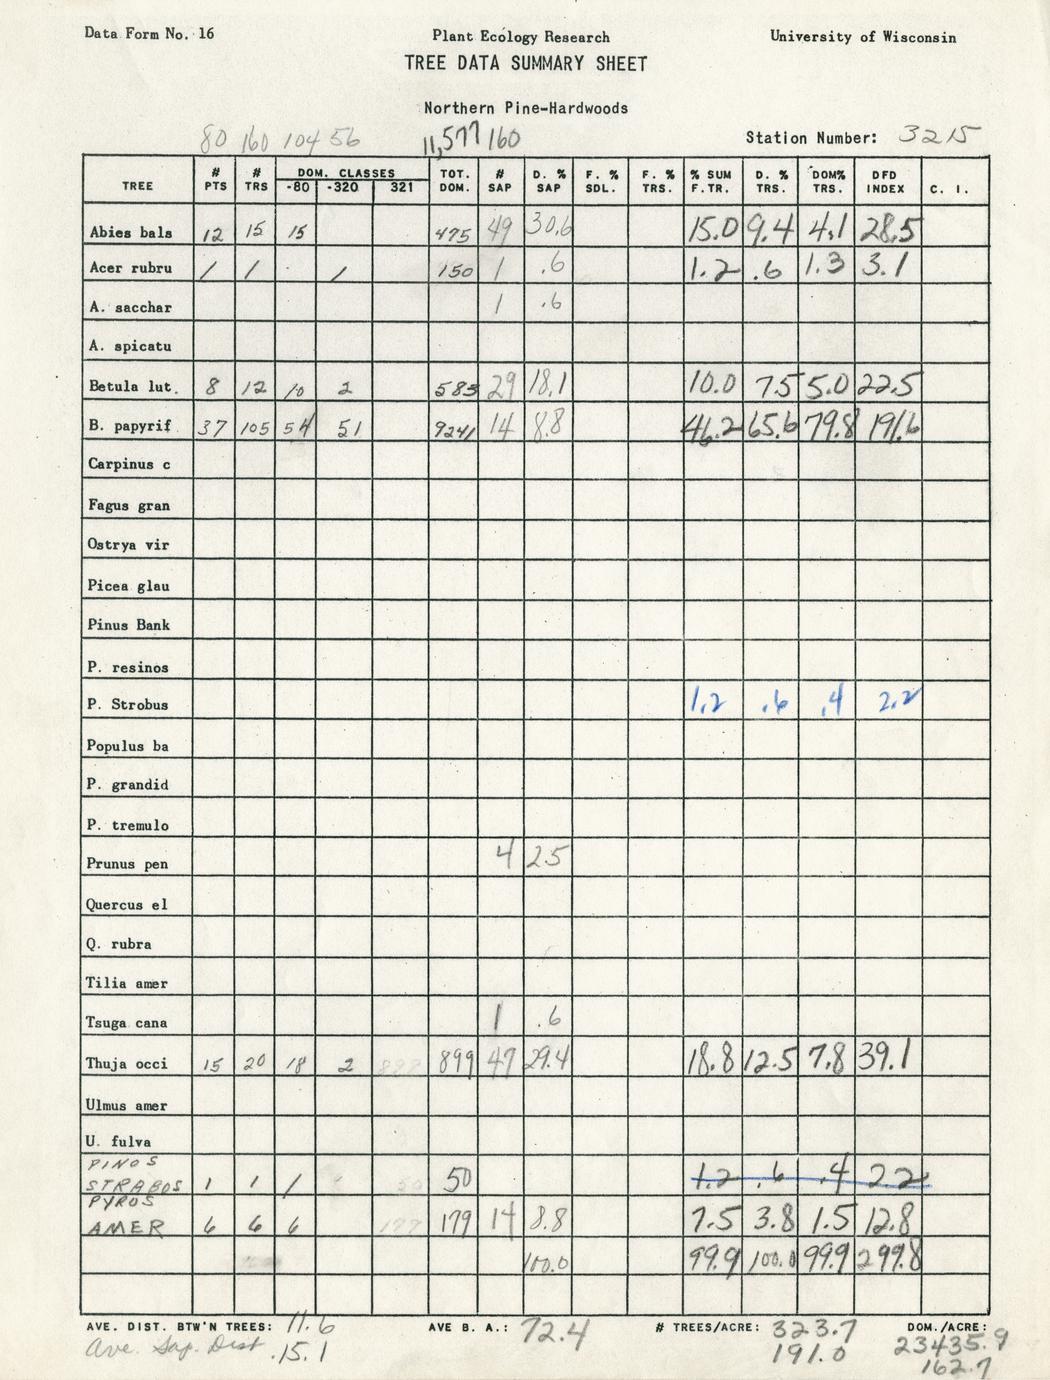 Data Form No. 16 Plant Ecology Research University of Wisconsin
TREE DATA SUMMARY SHEET
Northern Pine-Hardwoods
80 160 104 56 11,577 160 Station Number: 3215
TREE # PTS # TRS DOM. CLASSES -80 -320 321 TOT. DOM. # SAP D. % SAP F. % SDL. F. % TRS. % SUM F.TR. D. % TRS. DOM% TRS. DFD INDEX C. I.
Abies bals 12 15 15 475 49 30.6 15.0 9.4 4.1 28.5
Acer rubru 1 1 1 150 1 .6 1.2 .6 1.3 3.1
A. sacchar 1 .6
A. spicatu
Betula lut. 8 12 10 2 583 29 18.1 10.0 7.5 5.0 22.5
B. papyrif 37 105 54 51 9241 14 8.8 46.2 65.6 79.8 191.6
Carpinus c
Fagus gran
Ostrya vir
Picea glau
Pinus Bank
P. resinos
P. Strobus 1.2 .6 .4 2.2
Populus ba
P. grandid
P. tremulo
Prunus pen 4 2.5
Quercus el
Q. rubra
Tilia amer
Tsuga cana 1 .6
Thuja occi 15 20 18 2 899 47 29.4 18.8 12.5 7.8 39.1
Ulmus amer
U. fulva
PINOS
STRABOS 1 1 1 50 1.2 .6 .4 2.2
PYROS
AMER 6 6 6 179 14 8.8 7.5 3.8 1.5 12.8
100.0 99.9 100.0 99.9 299.8
AVE. DIST. BTW'N TREES: 11.6 AVE B. A.: 72.4 # TREES/ACRE: 323.7 DOM./ACRE: 23435.9
Ave. Sap. Dist. 15.1 191.0 162.7